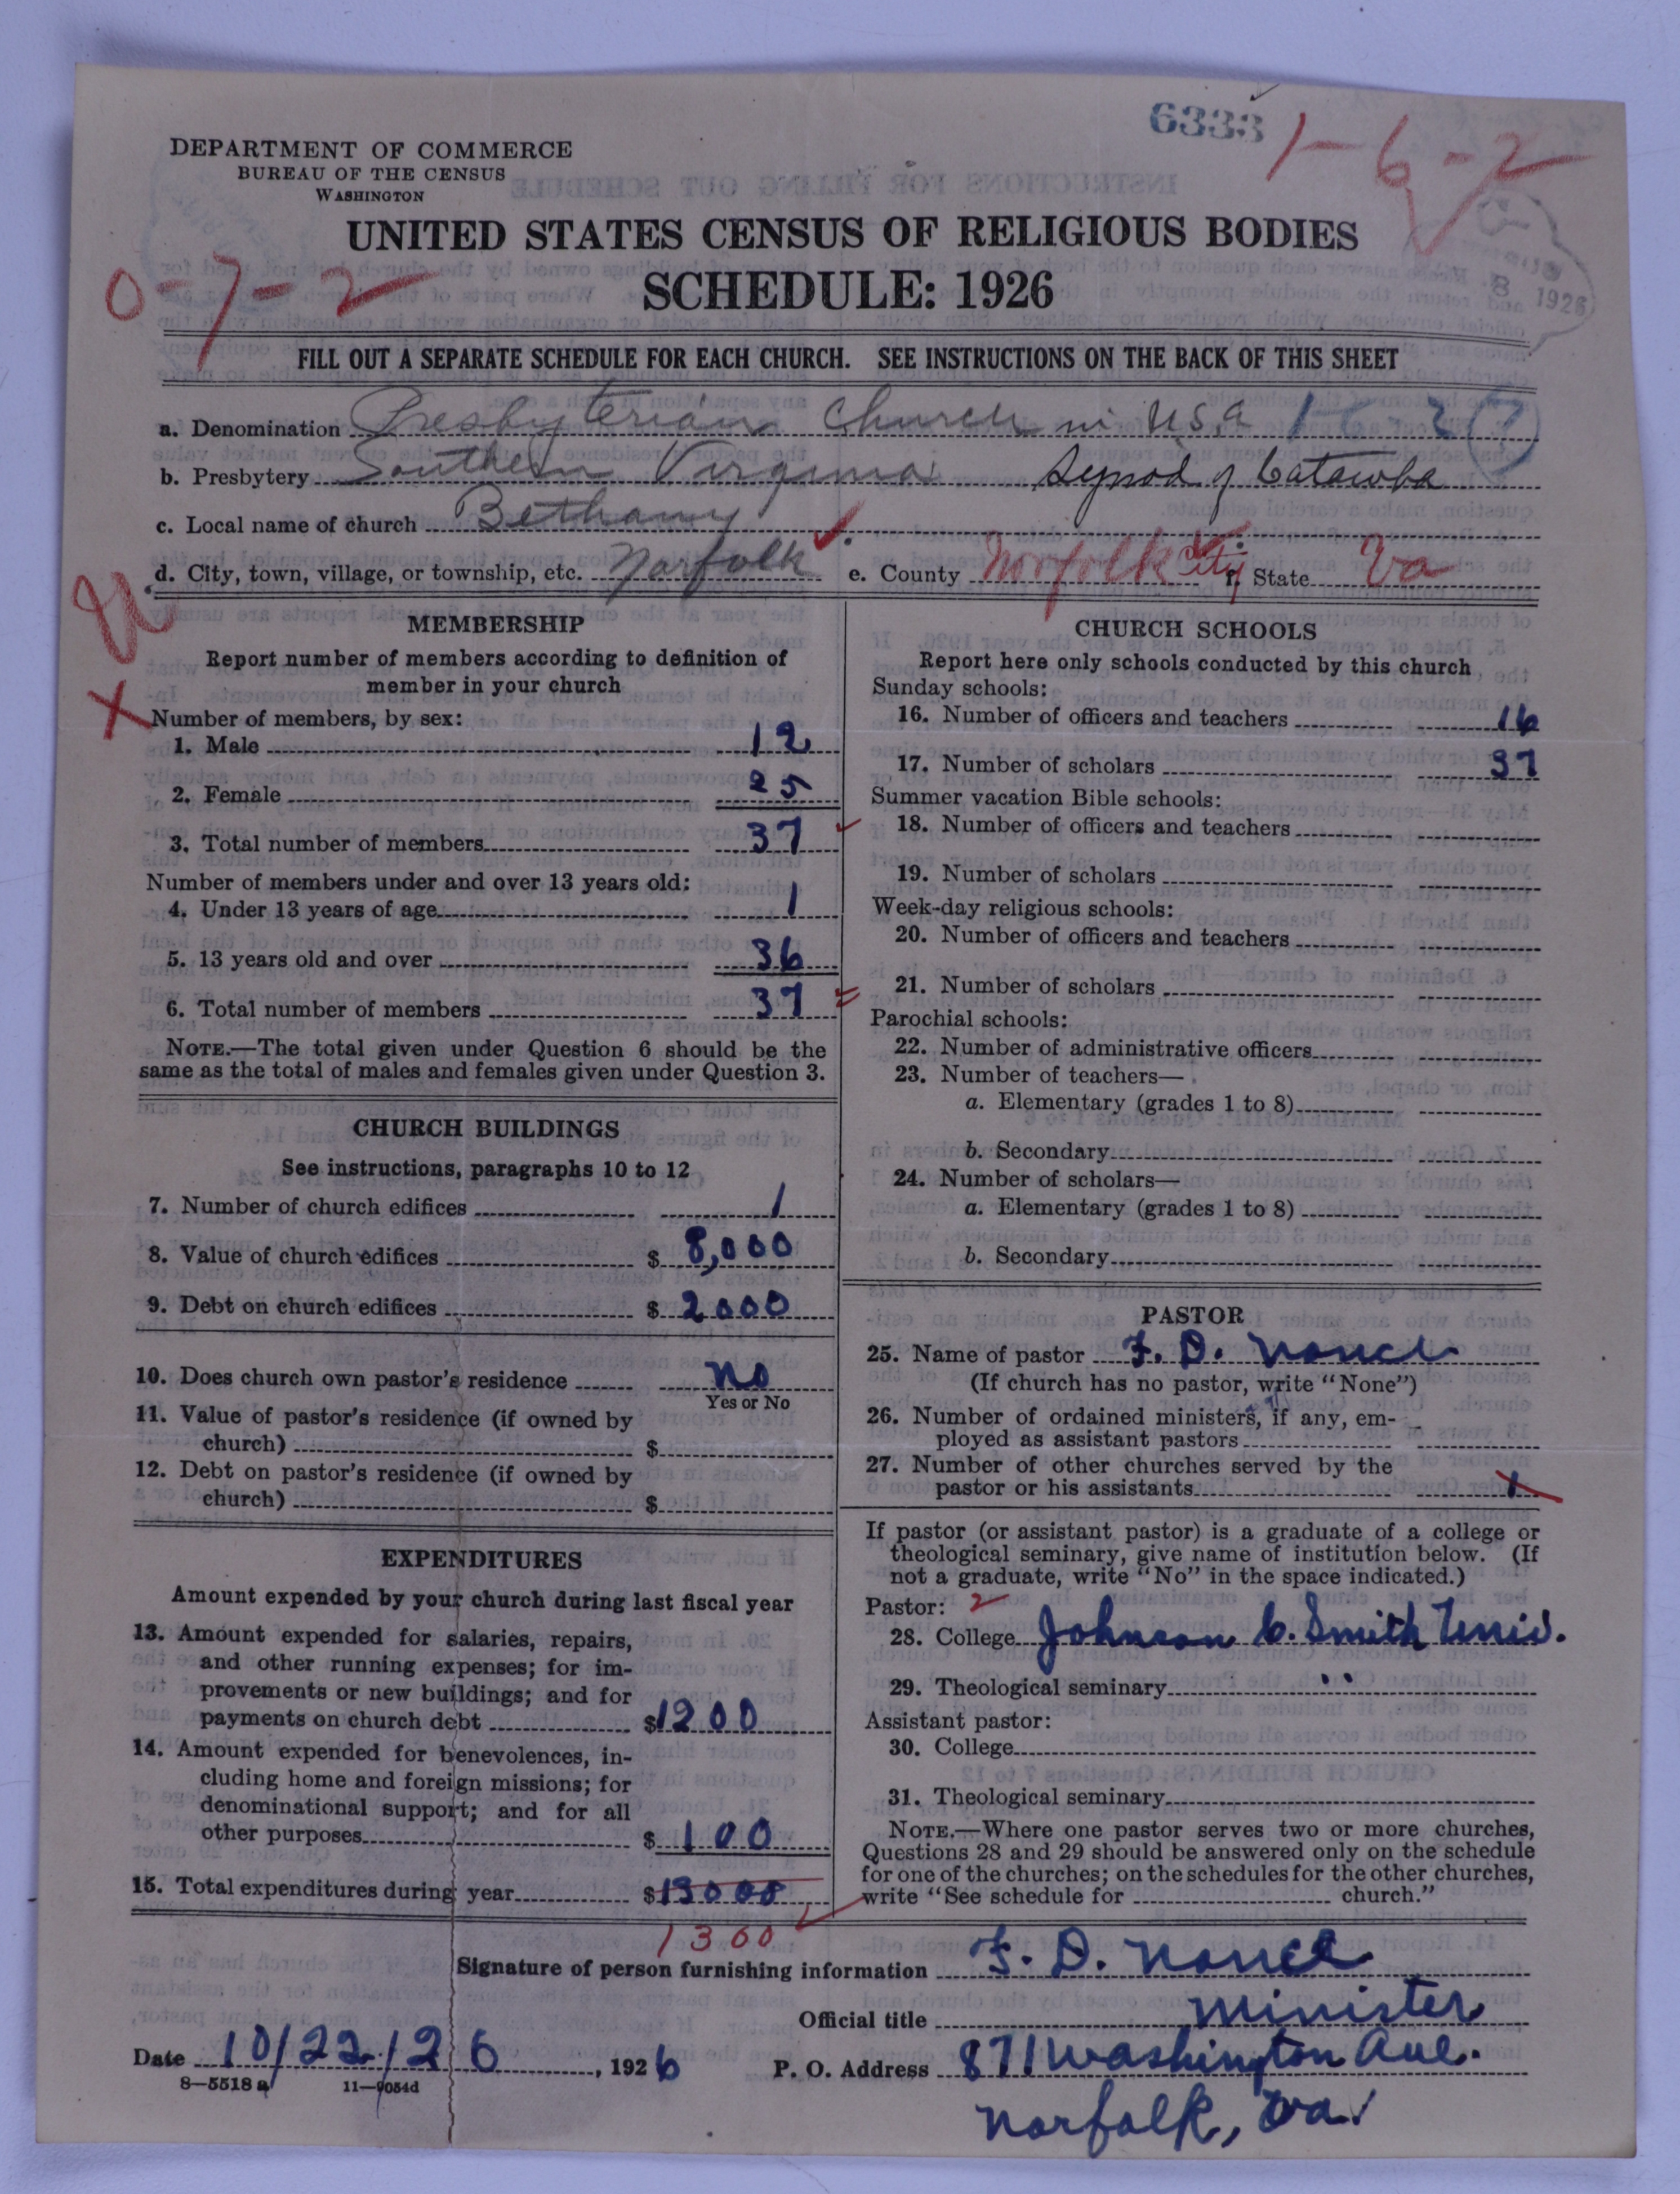 6333
1-6-2
DEPARTMENT OF COMMERCE
BUREAU OF THE CENSUS
WASHINGTON
UNITED STATES CENSUS OF RELIGIOUS BODIES
SCHEDULE: 1926
0-7-2
8 1926
FILL OUT A SEPARATE SCHEDULE FOR EACH CHURCH. SEE INSTRUCTIONS ON THE BACK OF THIS SHEET
a. Denomination Presbyterian Church in U.S.A
b. Presbytery Southern Virginia Synod of Catawba
c. Local name of church Bethany
d. City, town, village, or township, etc. Norfolk e. County Norfolk City f. State Va
MEMBERSHIP
Report number of members according to definition of
member in your church
X Number of members, by sex:
1. Male 12
2. Female 25
3. Total number of members 37
Number of members under and over 13 years old:
4. Under 13 years of age 1
5. 13 years old and over 36
6. Total number of members 37
NOTE.—The total given under Question 6 should be the
same as the total of males and females given under Question 3.
CHURCH BUILDINGS
See instructions, paragraphs 10 to 12
7. Number of church edifices 1
8. Value of church edifices $ 8,000
9. Debt on church edifices $ 2000
10. Does church own pastor's residence No
Yes or No
11. Value of pastor's residence (if owned by
church) $
12. Debt on pastor's residence (if owned by
church) $
EXPENDITURES
Amount expended by your church during last fiscal year
13. Amount expended for salaries, repairs,
and other running expenses; for im-
provements or new buildings; and for
payments on church debt $1200
14. Amount expended for benevolences, in-
cluding home and foreign missions; for
denominational support; and for all
other purposes $ 100
15. Total expenditures during year $13000
1300
CHURCH SCHOOLS
Report here only schools conducted by this church
Sunday schools:
16. Number of officers and teachers 16
17. Number of scholars 37
Summer vacation Bible schools:
18. Number of officers and teachers
19. Number of scholars
Week-day religious schools:
20. Number of officers and teachers
21. Number of scholars
Parochial schools:
22. Number of administrative officers
23. Number of teachers—
a. Elementary (grades 1 to 8)
b. Secondary
24. Number of scholars—
a. Elementary (grades 1 to 8)
b. Secondary
PASTOR
25. Name of pastor F. D. Nance
(If church has no pastor, write "None")
26. Number of ordained ministers, if any, em-
ployed as assistant pastors
27. Number of other churches served by the
pastor or his assistants 1
If pastor (or assistant pastor) is a graduate of a college or
theological seminary, give name of institution below. (If
not a graduate, write "No" in the space indicated.)
Pastor: 2
28. College Johnson C. Smith Univ.
29. Theological seminary "
Assistant pastor:
30. College
31. Theological seminary
NOTE.—Where one pastor serves two or more churches,
Questions 28 and 29 should be answered only on the schedule
for one of the churches; on the schedules for the other churches,
write "See schedule for church."
Signature of person furnishing information F. D. Nance
Official title Minister
Date 10/22/26, 1926 P. O. Address 871 Washington Ave.
8—5518 a 11—9054d
Norfolk, Va.